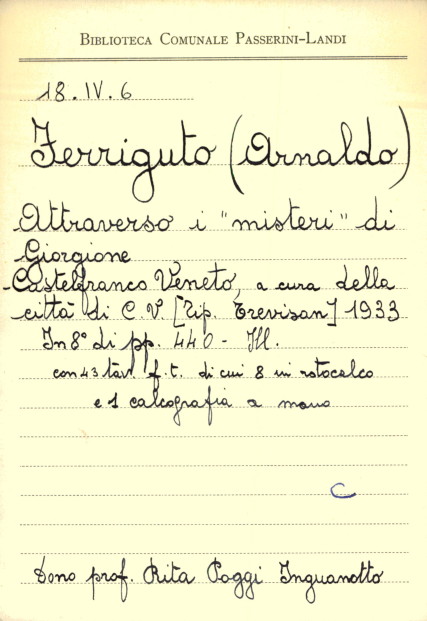 BIBLIOTECA COMUNALE PASSERINI-LANDI
18.IV.6
Ferriguto (Arnaldo)
Attraverso i "misteri" di
Giorgione
- Castelfranco Veneto, a cura della
città di C.V [Tip. Trevisan] 1933
In 8° di pp. 440 - Ill.
con 43 tav. f.t. di cui 8 in rotocalco
e 1 calcografia a mano
C
Dono prof. Rita Poggi Inguanotto